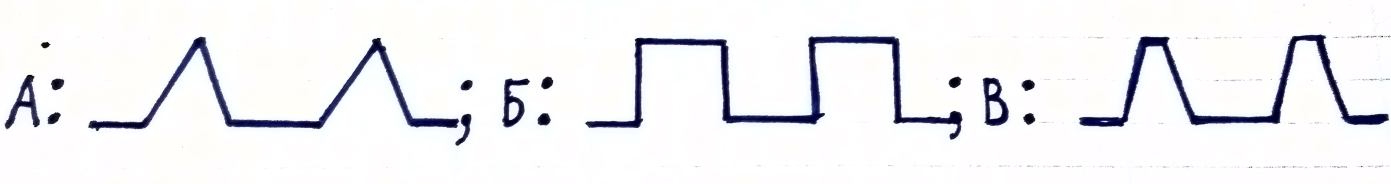 А: ; Б: ; В: